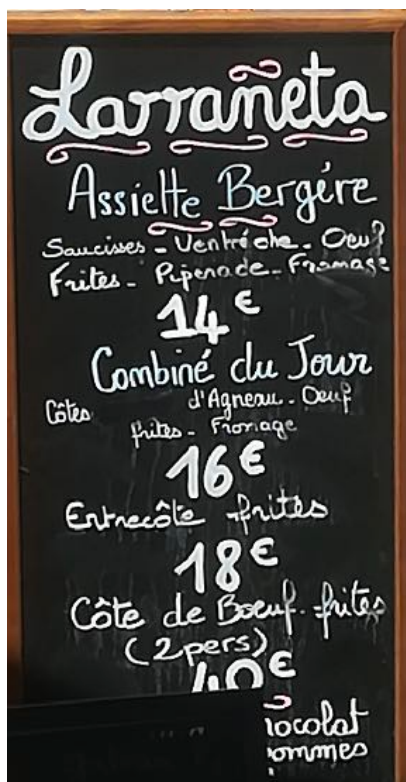 Larrañeta
Assiette Bergére
Saucisses - Ventrêche - Oeuf
Frites - Piperade - Fromage
14 €
Combiné du Jour
Côtes d'Agneau - Oeuf
frites - Fromage
16 €
Entrecôte - frites
18 €
Côte de Boeuf - frites
(2 pers)
40 €